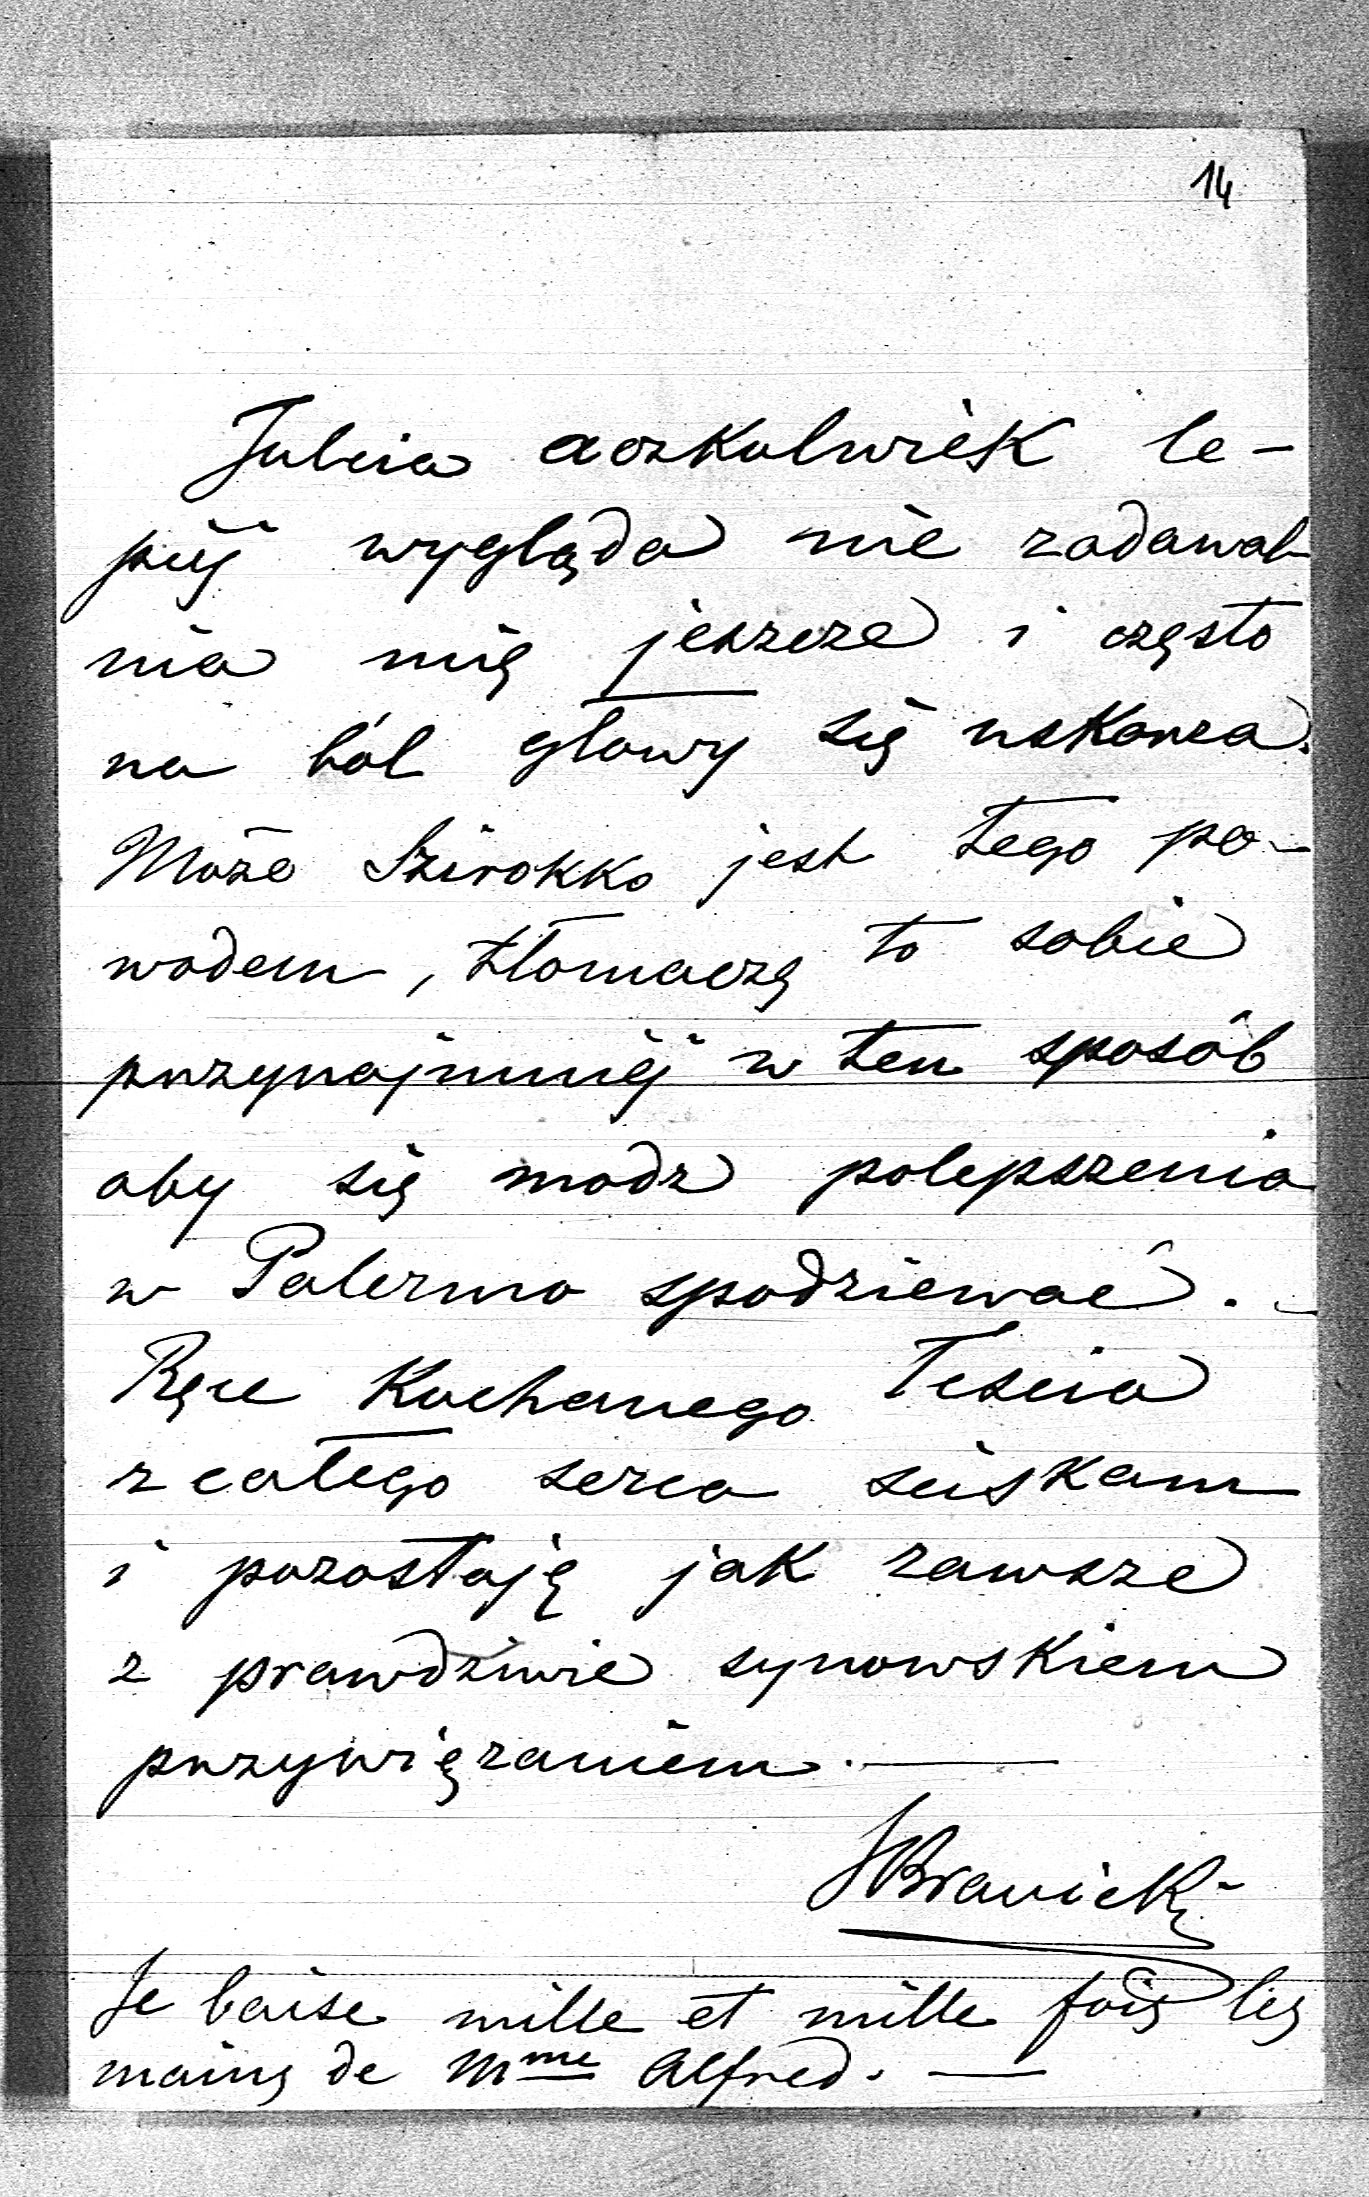 14
Julcia aczkolwiek le-
piéj wygląda nie zadawal-
nia mię jeszcze i często
na ból głowy się uskarza.
Może Szirokko jest tego po-
wodem, tłomaczę to sobie
przynajmniéj w ten sposób
aby się módz polepszenia
w Palermo spodziewać. –
Ręce Kochanego Teścia
z całego serca ściskam
i pozostaję jak zawsze
z prawdziwie synowskiem
przywiązaniem. —
Branicki
Je baise mille et mille fois les
mains de Mme Alfred. —